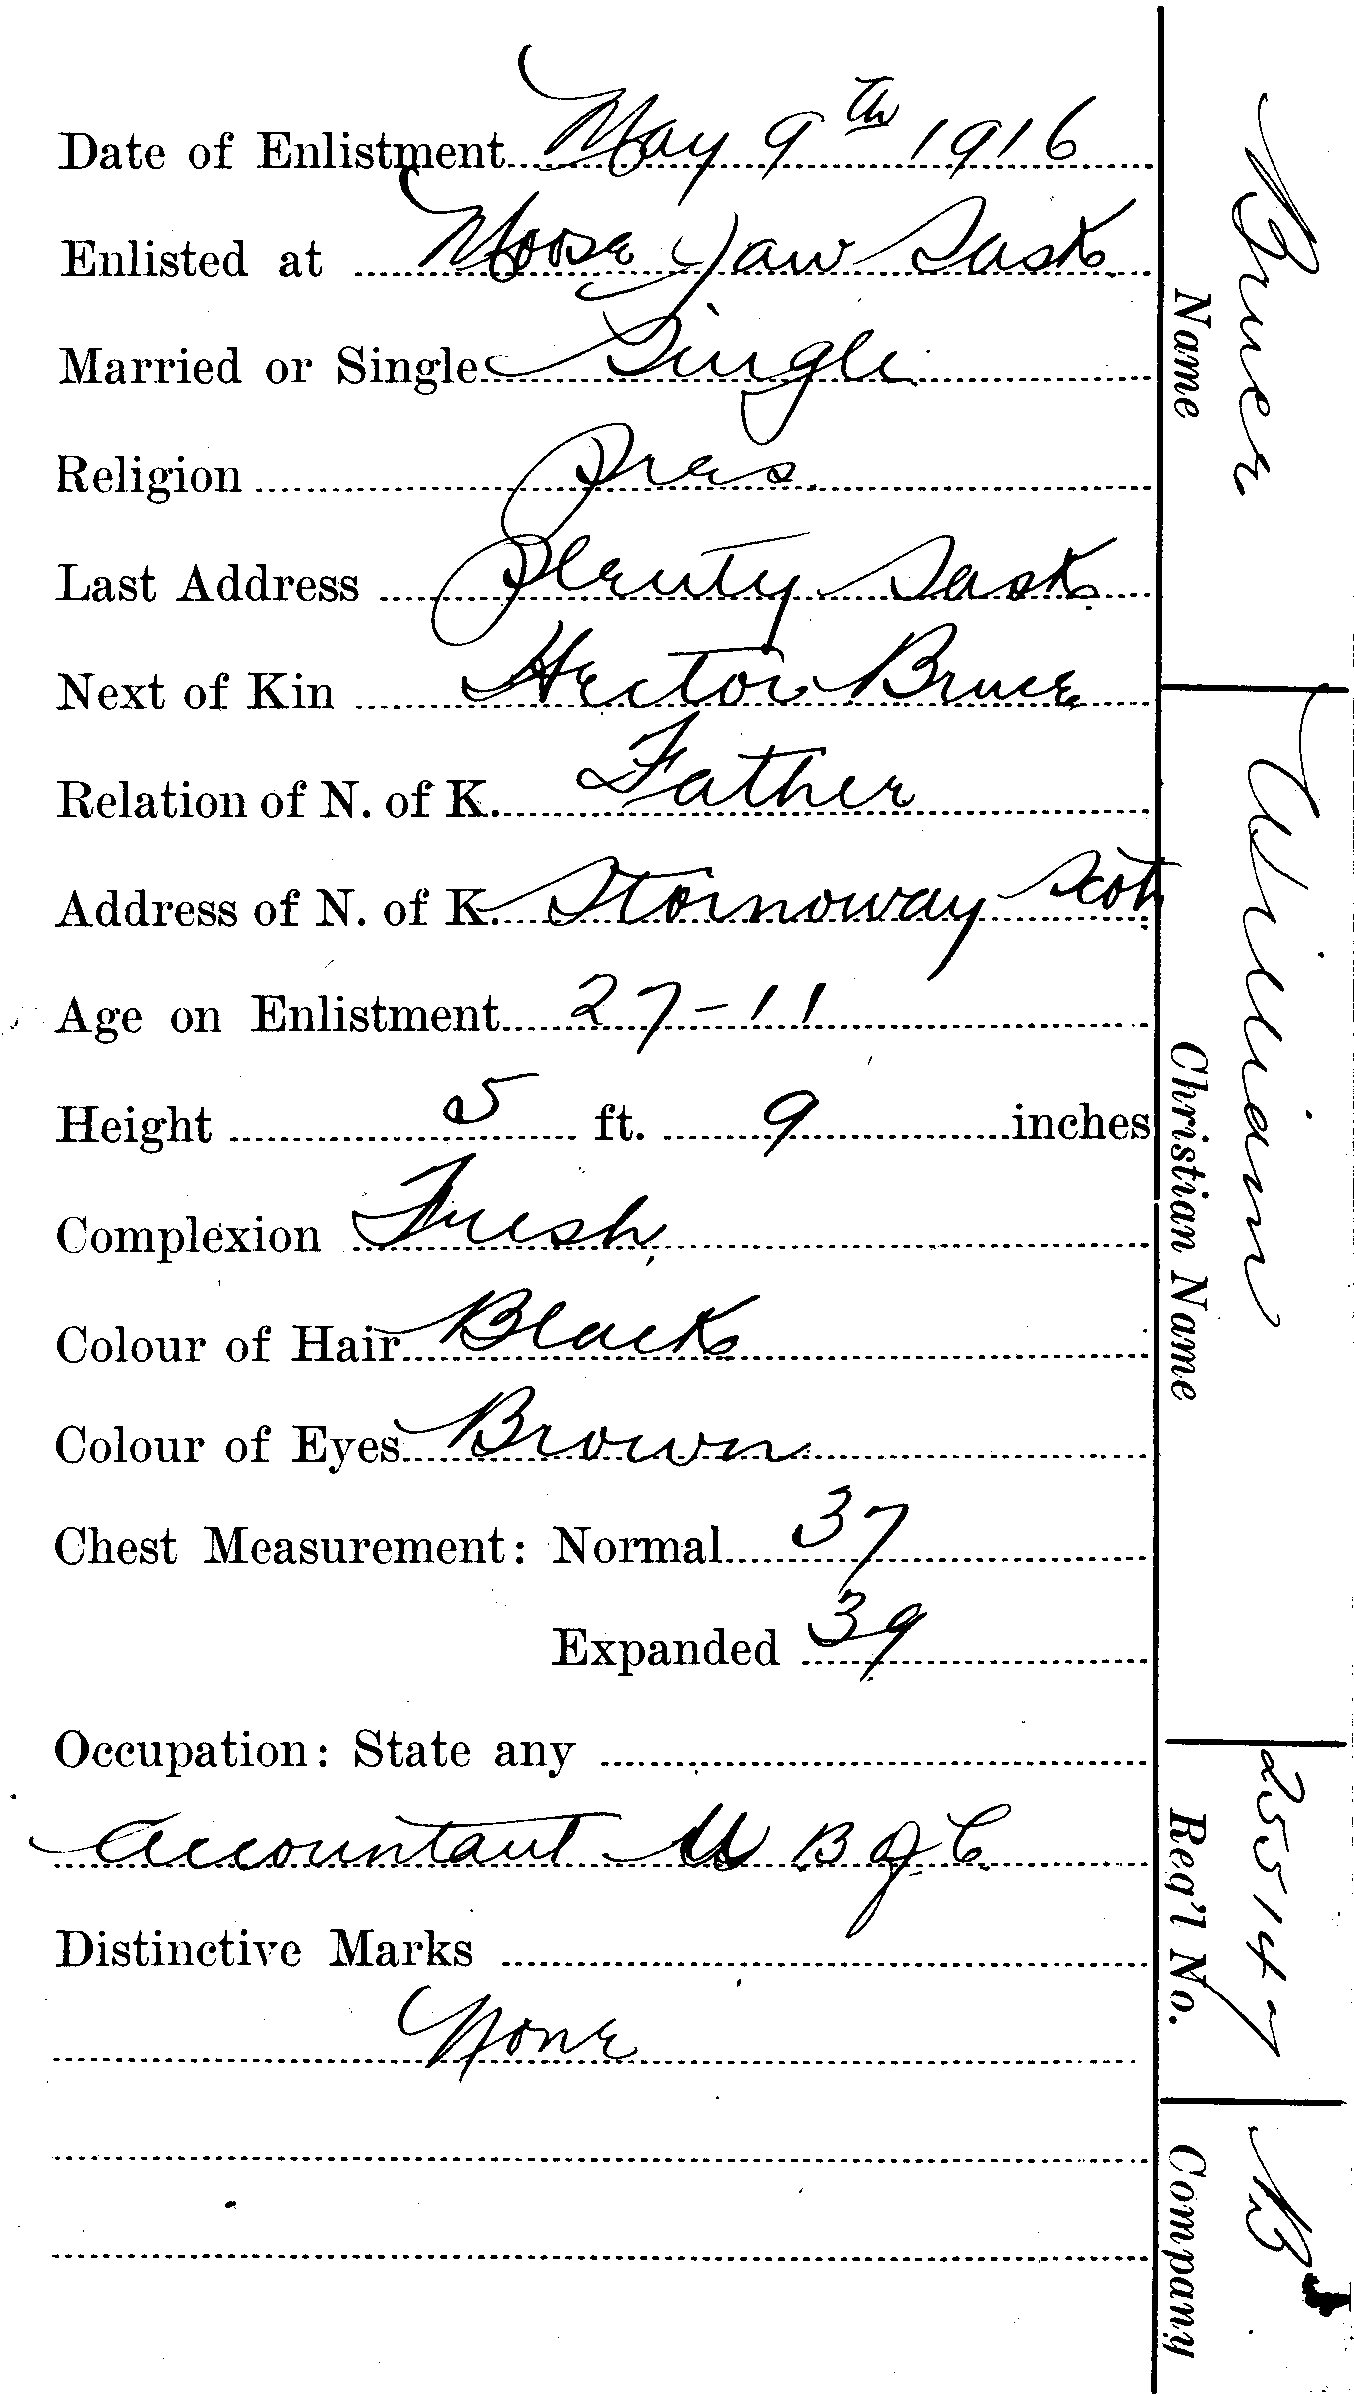 Date of Enlistment May 9th 1916
Enlisted at Moose Jaw Sask
Married or Single Single
Religion Pres.
Last Address Plenty Sask
Next of Kin Hector Bruce
Relation of N. of K. Father
Address of N. of K. Stornoway Scot
Age on Enlistment 27-11
Height 5 ft. 9 inches
Complexion Fresh
Colour of Hair Black
Colour of Eyes Brown
Chest Measurement: Normal 37
Expanded 39
Occupation: State any
Accountant U B of C
Distinctive Marks
None
Bruce
Name
William
Christian Name
255147
Reg'l No.
B
Company